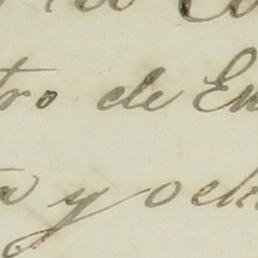 tro de En
a y och